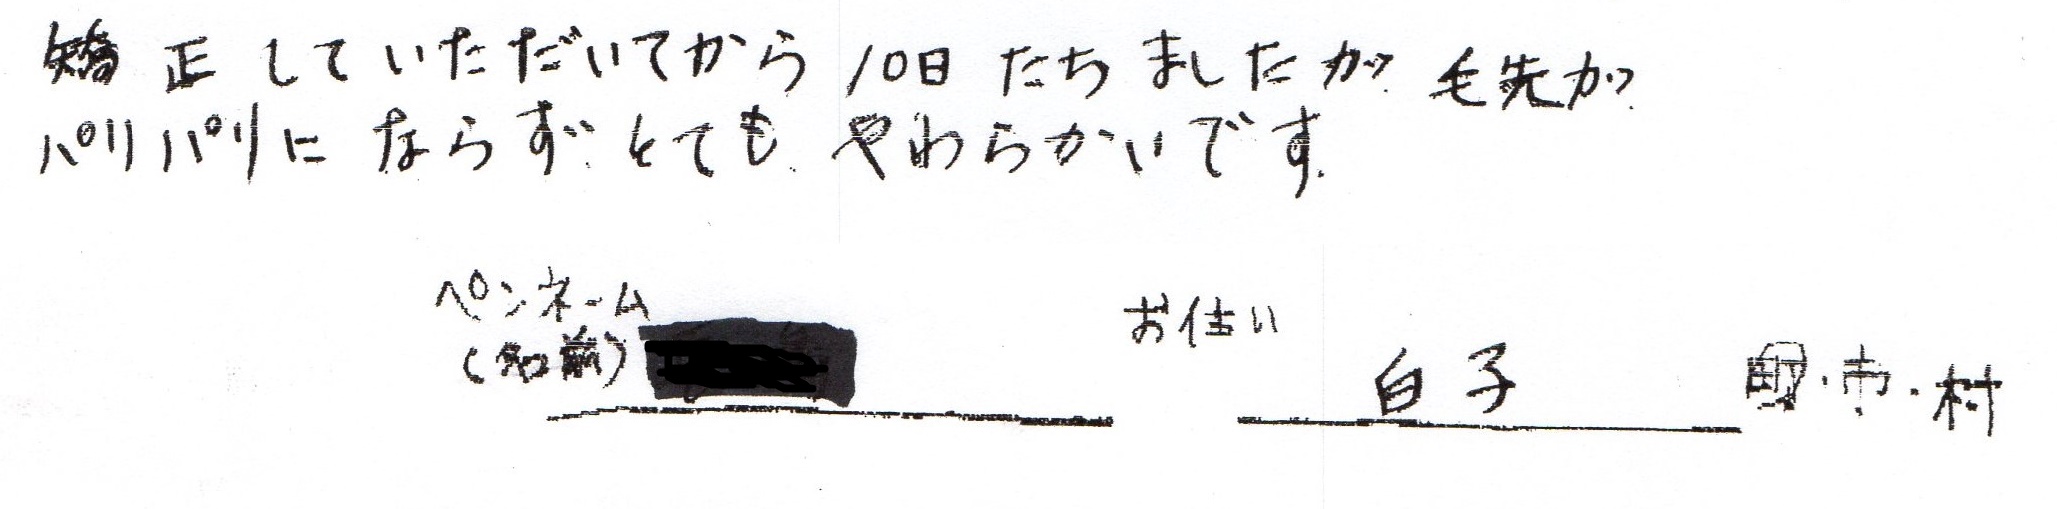 矯正していただいてから10日たちましたが毛先が
パリパリにならずとてもやわらかいです。
ペンネーム
(名前)
お住い
白子 町・市・村